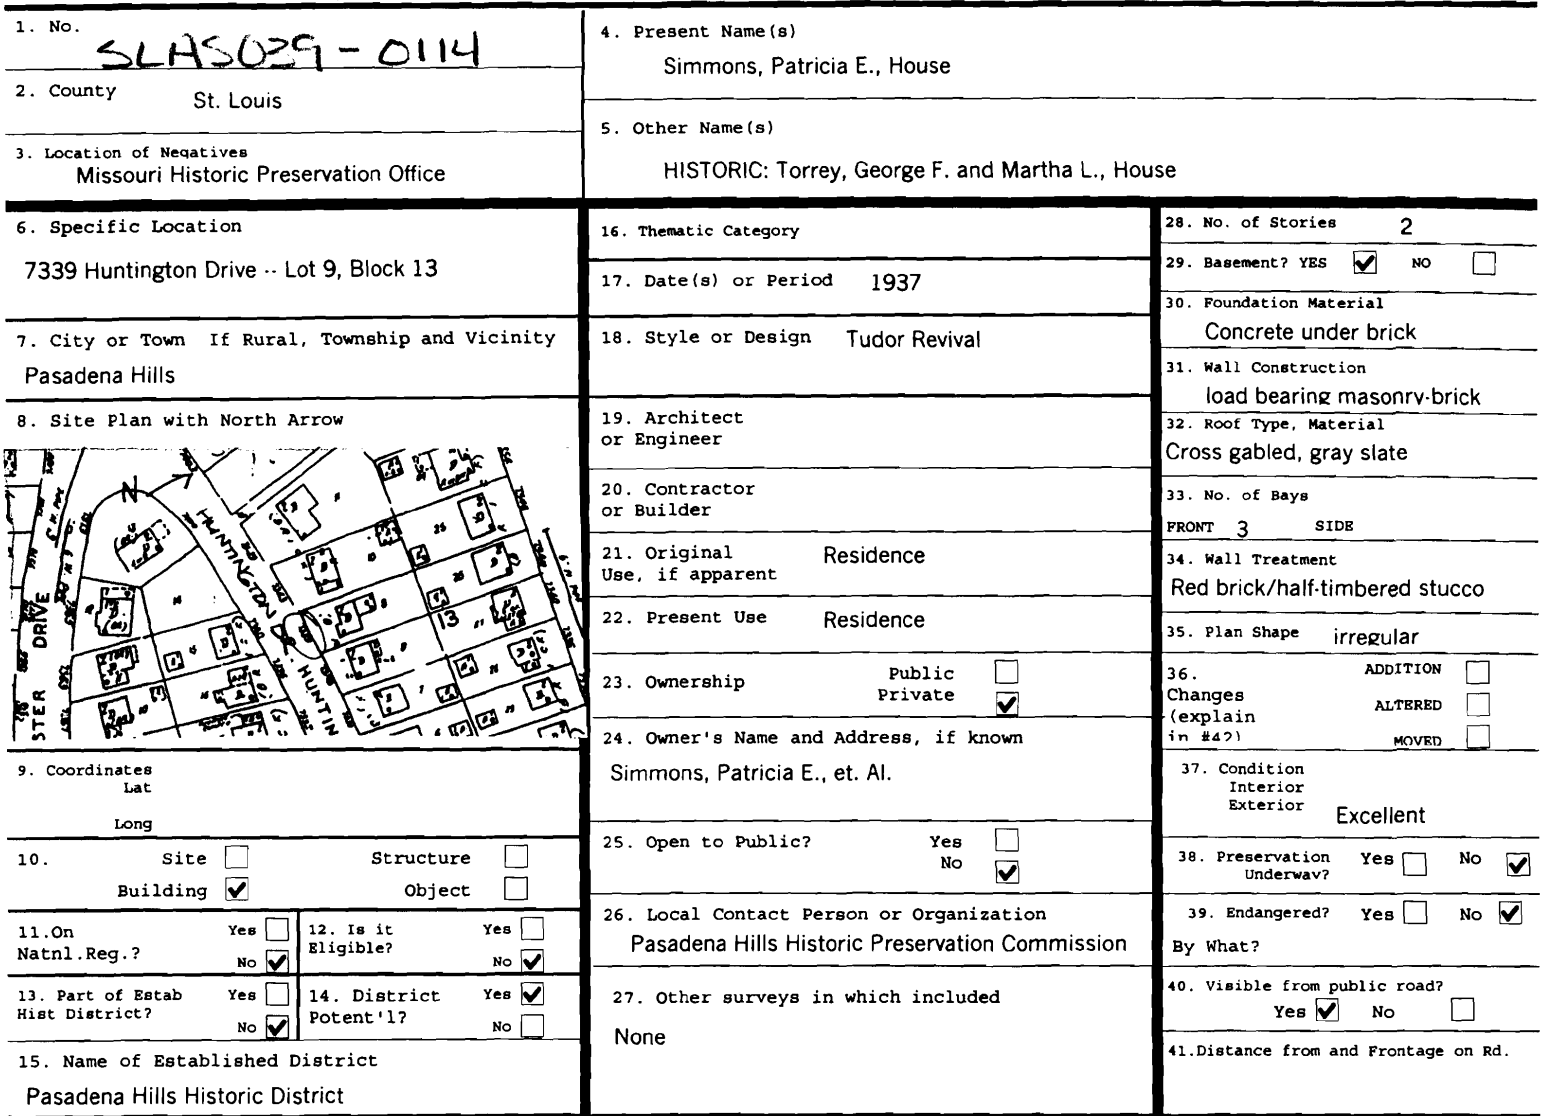 1. No.
SLAS029-0114
2. County
St. Louis
3. Location of Negatives
Missouri Historic Preservation Office
4. Present Name(s)
Simmons, Patricia E., House
5. Other Name(s)
HISTORIC: Torrey, George F. and Martha L., House
6. Specific Location
7339 Huntington Drive -- Lot 9, Block 13
7. City or Town If Rural, Township and Vicinity
Pasadena Hills
8. Site Plan with North Arrow
N
HUNTINGTON DR.
HUNTIN
DRIVE
STER
13
9. Coordinates
Lat
Long
10. Site Structure
Building Object
11.On Natnl.Reg.? Yes No
12. Is it Eligible? Yes No
13. Part of Estab Hist District? Yes No
14. District Potent'l? Yes No
15. Name of Established District
Pasadena Hills Historic District
16. Thematic Category
17. Date(s) or Period 1937
18. Style or Design Tudor Revival
19. Architect
or Engineer
20. Contractor
or Builder
21. Original Residence
Use, if apparent
22. Present Use Residence
23. Ownership Public
Private
24. Owner's Name and Address, if known
Simmons, Patricia E., et. Al.
25. Open to Public? Yes
No
26. Local Contact Person or Organization
Pasadena Hills Historic Preservation Commission
27. Other surveys in which included
None
28. No. of Stories 2
29. Basement? YES NO
30. Foundation Material
Concrete under brick
31. Wall Construction
load bearing masonry-brick
32. Roof Type, Material
Cross gabled, gray slate
33. No. of Bays
FRONT 3 SIDE
34. Wall Treatment
Red brick/half-timbered stucco
35. Plan Shape irregular
36. ADDITION
Changes
(explain ALTERED
in #42) MOVED
37. Condition
Interior
Exterior Excellent
38. Preservation Yes No
Underway?
39. Endangered? Yes No
By What?
40. Visible from public road?
Yes No
41.Distance from and Frontage on Rd.